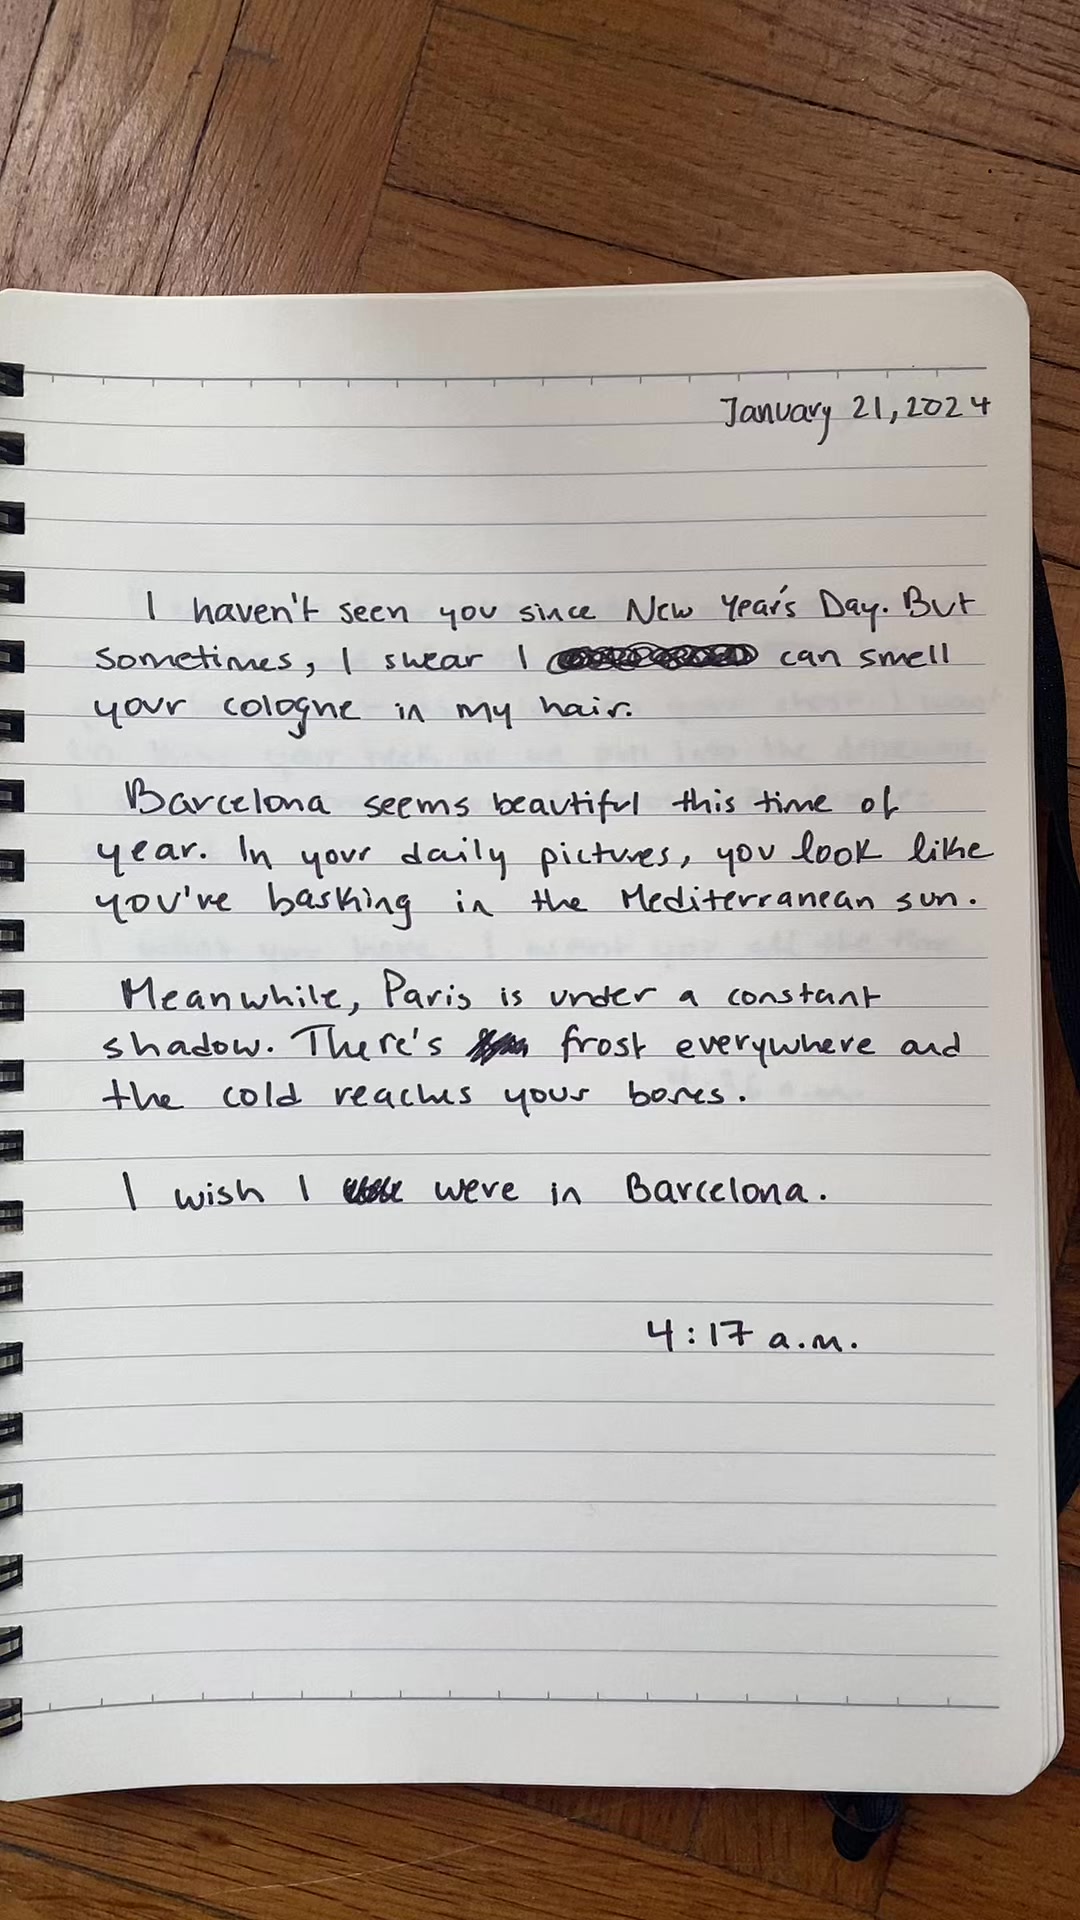 January 21, 2024
I haven't seen you since New Year's Day. But
sometimes, I swear I can smell
your cologne in my hair.
Barcelona seems beautiful this time of
year. In your daily pictures, you look like
you've basking in the Mediterranean sun.
Meanwhile, Paris is under a constant
shadow. There's frost everywhere and
the cold reaches your bones.
I wish I were in Barcelona.
4:17 a.m.